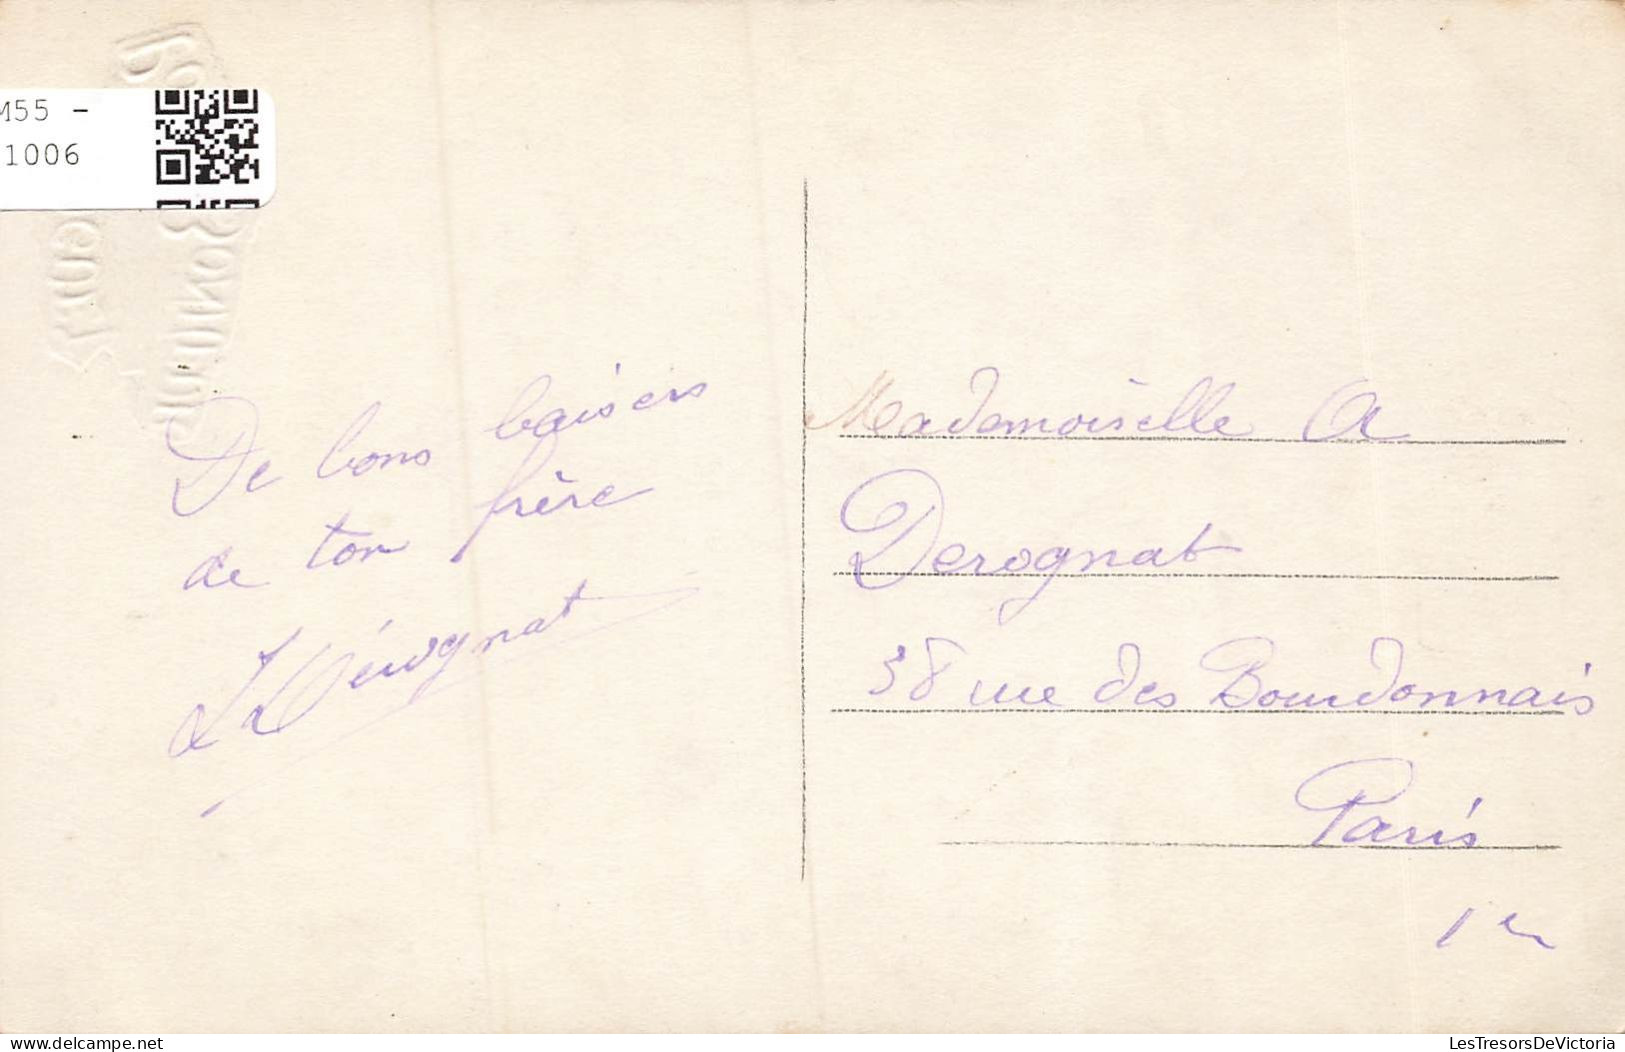 M55 -
1006
De bons baisers
de ton frère
Dérognat
Mademoiselle A
Derognat
38 rue des Bourdonnais
Paris
1er
LesTresorsDeVictoria
www.delcampe.net